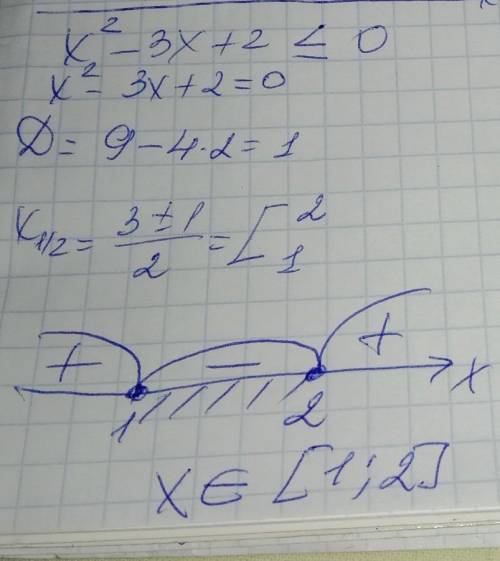 x² - 3x + 2 ≤ 0
x² - 3x + 2 = 0
D = 9 - 4·2 = 1
x₁/₂ = (3 ± 1)/2 = [ 2 1
+ − +
1 2 x
x ∈ [1; 2]